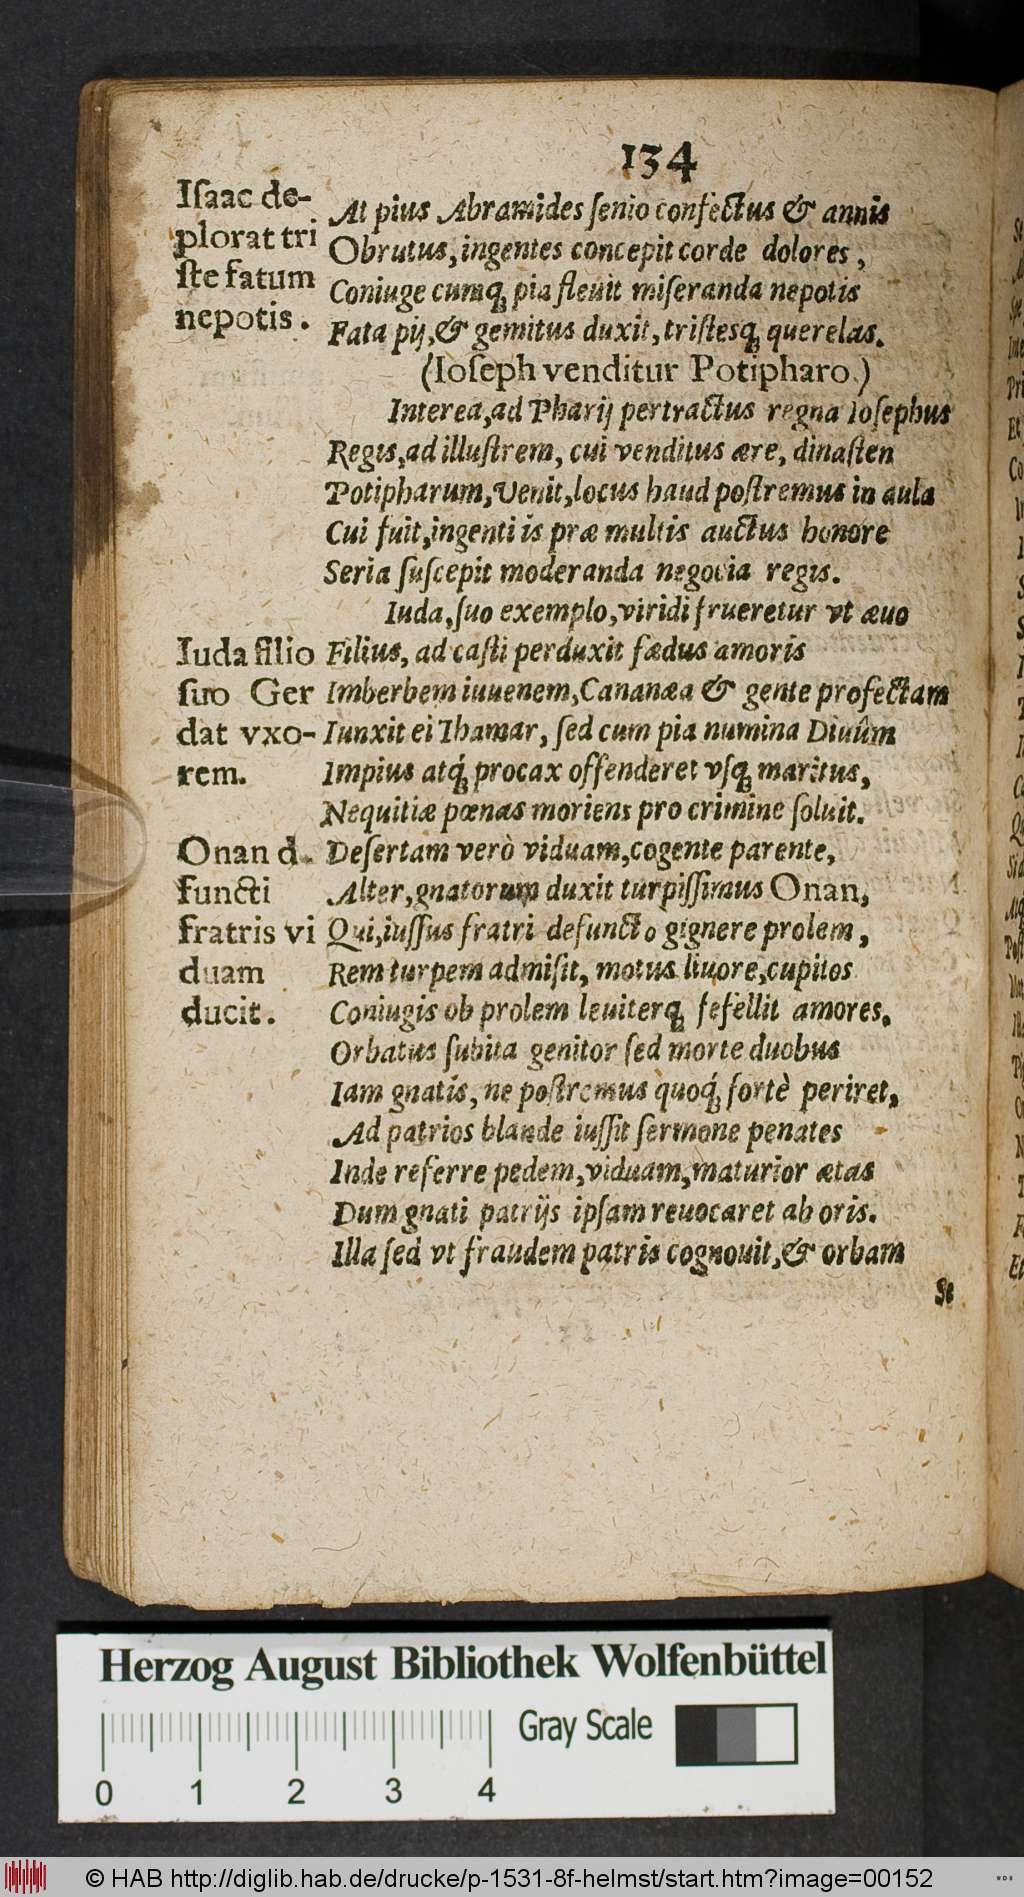 134
Iſaac de-
plorat tri
ſte fatum
nepotis.
At pius Abramides ſenio confectus & annis
Obrutus, ingentes concepit corde dolores,
Coniuge cumq́; pia fleuit miſeranda nepotis
Fata pij, & gemitus duxit, triſtesq; querelas.
(Ioſeph venditur Potipharo.)
Interea, ad Pharij pertractus regna Ioſephus
Regis, ad illuſtrem, cui venditus ære, dinaſten
Potipharum, Venit, locus haud poſtremus in aula
Cui fuit, ingenti is præ multis auctus honore
Seria ſuſcepit moderanda negocia regis.
Iuda, ſuo exemplo, viridi frueretur vt æuo
Iuda filio
ſuo Ger
dat vxo-
rem.
Filius, ad caſti perduxit fædus amoris
Imberbem iuuenem, Cananæa & gente profectam
Iunxit ei Thamar, ſed cum pia numina Diuûm
Impius atq́; procax offenderet vſq; maritus,
Nequitiæ pœnas moriens pro crimine ſoluit.
Onan d.
functi
fratris vi
duam
ducit.
Deſertam verò viduam, cogente parente,
Alter, gnatorum duxit turpiſſimus Onan,
Qui, iuſſus fratri defuncto gignere prolem,
Rem turpem admiſit, motus liuore, cupitos
Coniugis ob prolem leuiterq; fefellit amores.
Orbatus ſubita genitor ſed morte duobus
Iam gnatis, ne poſtremus quoq́; fortè periret,
Ad patrios blande iuſſit ſermone penates
Inde referre pedem, viduam, maturior ætas
Dum gnati patrijs ipſam reuocaret ab oris.
Illa ſed vt fraudem patris cognouit, & orbam
Se
Herzog August Bibliothek Wolfenbüttel
Gray Scale
0 1 2 3 4
© HAB http://diglib.hab.de/drucke/p-1531-8f-helmst/start.htm?image=00152